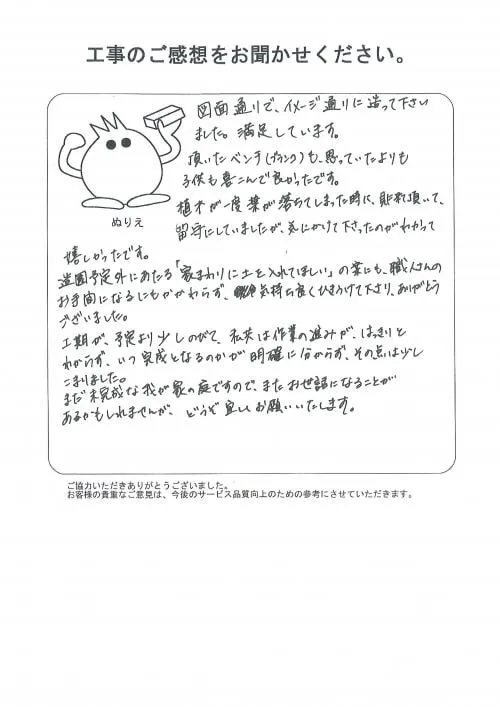 工事のご感想をお聞かせください。
図面通りで、イメージ通りに造って下さい
ました。満足しています。
頂いたベンチ(ブランコ)も、思っていたよりも
子供も喜こんで良かったです。
植木が一度葉が落ちてしまった時に、貼れ頂いて、
留守にしていましたが、気にかけて下さったのがわかって
ぬりえ
嬉しかったです。
造園予定外にあたる「家まわりに土を入れてほしい」の業にも、職人さんの
お手間になるにもかかわらず、気持ち良くひきうけて下さり、ありがとう
ございました。
工期が、予定より少しのびて、私共は作業の進みが、はっきりと
わからず、いつ完成となるのかが明確に分からず、その点は少し
こまりました。
まだ未完成な我が家の庭ですので、またお世話になることが
あるかもしれませんが、どうぞ宜しくお願いいたします。
ご協力いただきありがとうございました。
お客様の貴重なご意見は、今後のサービス品質向上のための参考にさせていただきます。